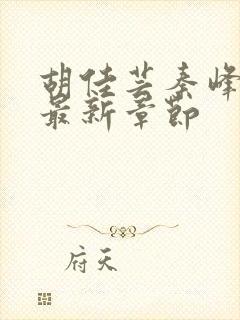 胡佳芸秦峰
最新章节
府天